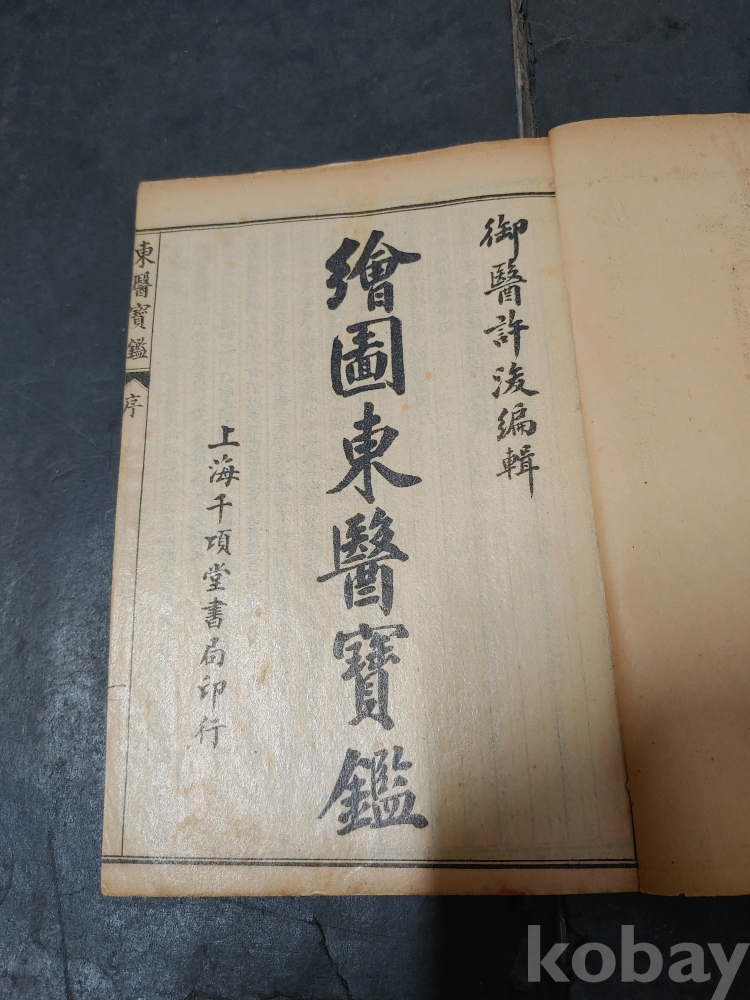 御醫許浚編輯
繪圖東醫寶鑑
上海千頃堂書局印行
東醫寶鑑
序
一
kobay